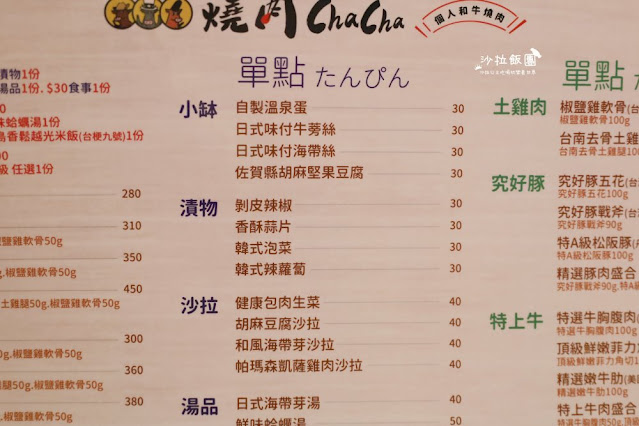 燒肉 ChaCha
個人和牛燒肉
沙拉飯團
漬物1份
湯品1份. $30食事1份
蛤蠣湯1份
島香鬆越光米飯(台梗九號)1份
級 任選1份
280
椒鹽雞軟骨50g
310
g.椒鹽雞軟骨50g
350
450
土雞腿50g.椒鹽雞軟骨50g
300
g.椒鹽雞軟骨50g
360
腿50g.椒鹽雞軟骨50g
380
單點 たんぴん
小缽
自製溫泉蛋 30
日式味付牛蒡絲 30
日式味付海帶絲 30
佐賀縣胡麻堅果豆腐 30
漬物
剝皮辣椒 30
香酥蒜片 30
韓式泡菜 30
韓式辣蘿蔔 30
沙拉
健康包肉生菜 40
胡麻豆腐沙拉 40
和風海帶芽沙拉 40
帕瑪森凱薩雞肉沙拉 40
湯品
日式海帶芽湯 40
鮮味蛤蠣湯 50
單點
土雞肉
椒鹽雞軟骨(台
椒鹽雞軟骨100g
台南去骨土雞腿
台南去骨土雞腿100
究好豚
究好豚五花(台
究好豚五花100g
究好豚戰斧(台
究好豚戰斧90g
特A級松阪豚(
特A級松阪豚100g
精選豚肉盛合
究好豚戰斧90g.特A
特上牛
特選牛胸腹肉(
特選牛胸腹肉100g
頂級鮮嫩菲力
頂級鮮嫩菲力角切1
精選嫩牛肋(美
精選嫩牛肋100g
特上牛肉盛合
特選牛胸腹肉50g.頂